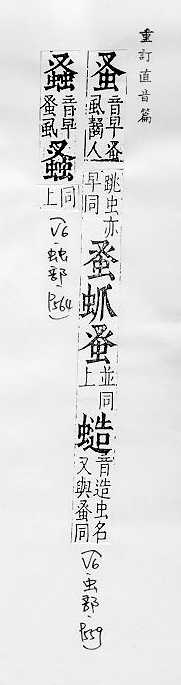 重訂直音篇
蚤 音早蚤
虱齧人
跳虫亦
早同
蚤
蚤 並同
上
音造虫名
又與蚤同
(V6.虫部.P559)
音早
蚤虱
同
上
(V6.䖵部.P564)